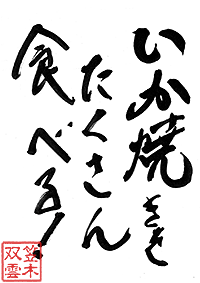 いか焼きを
たくさん
食べる！
笠木
双雲